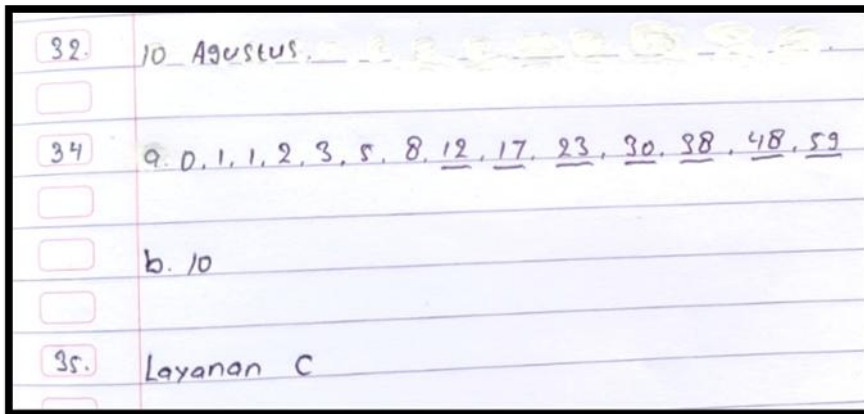 32. 10 Agustus.
34 a. 0, 1, 1, 2, 3, 5, 8, 12, 17, 23, 30, 38, 48, 59
b. 10
35. Layanan C